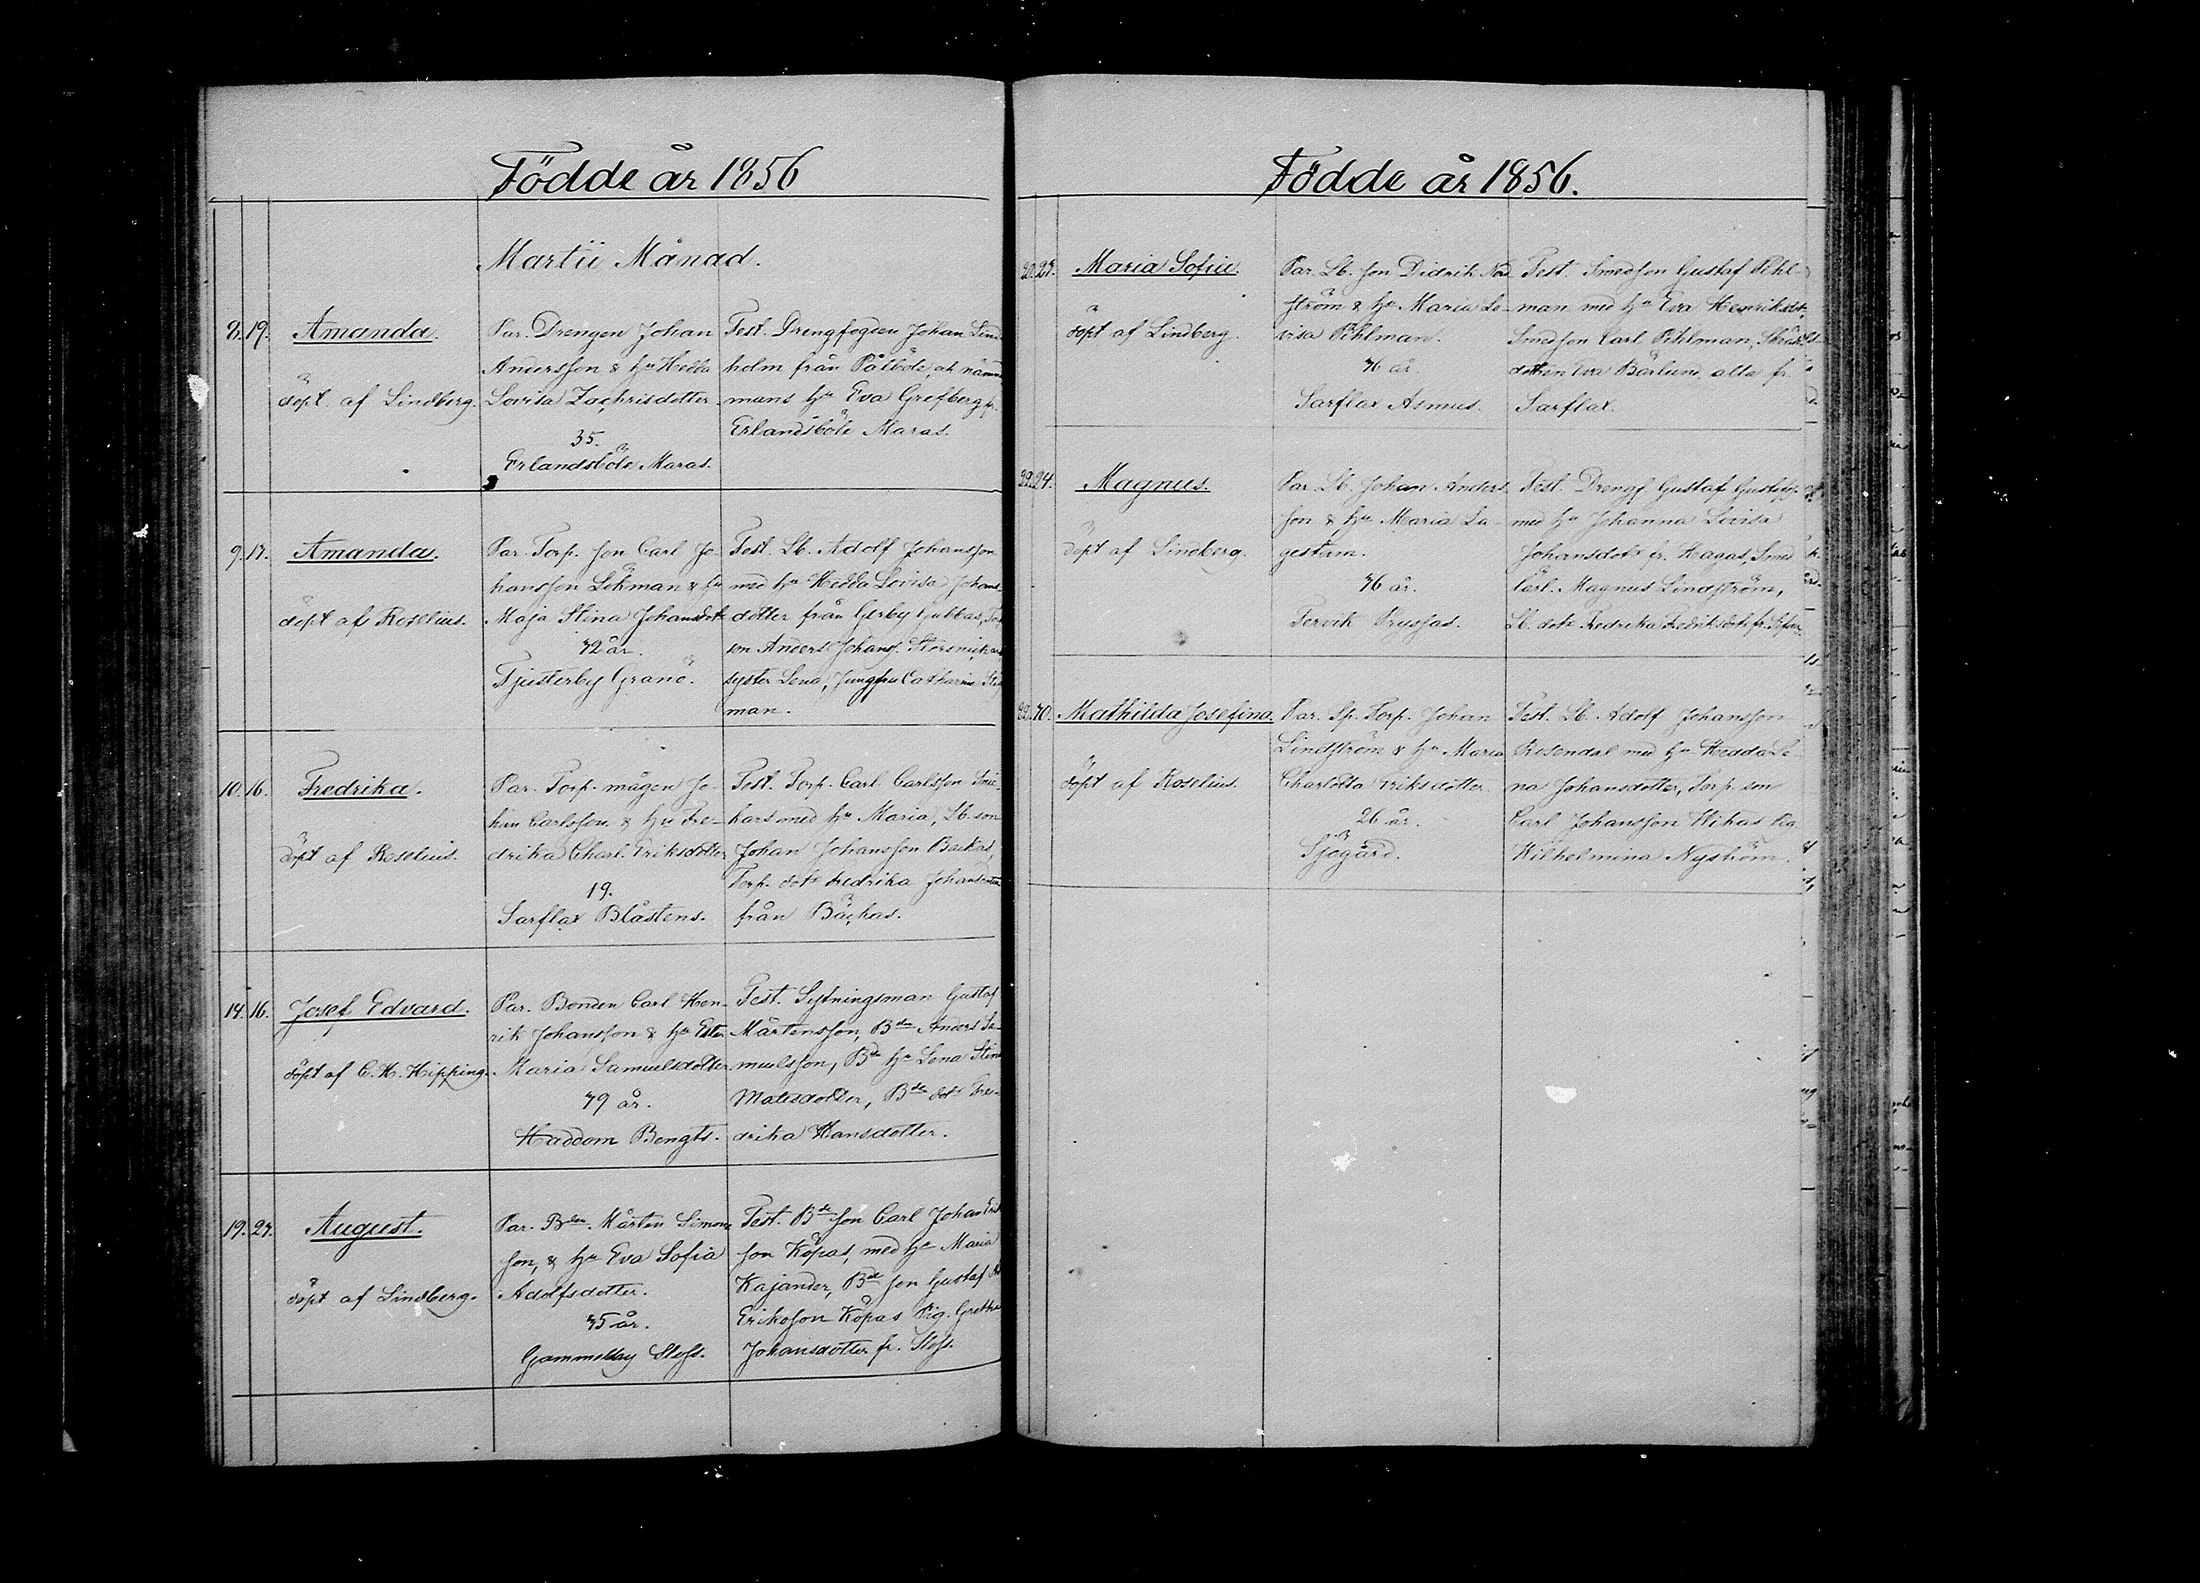 Födde år 1856
Martii Månad.
8. 19. Amanda.
döpt af Lindberg.
Par. Drengen Johan
Andersson & hu Hedda
Lovisa Zachrisdotter
35.
Erlandsböle Maras.
Test. Drengfogden Johan Lind
holm från Pålböle, och nämnde
mans hu Eva Grefberg fr.
Erlandsböle Maras.
9. 17. Amanda.
döpt af Roselius.
Par. Torp. son Carl Jo-
hansson Lökman & hu
Maja Stina Johansdotr
32 år.
Tjusterby Granö.
Test. Lb. Adolf Johansson
med hu Hedda Lovisa Johans
dotter från Gerby Gubbas,
son Anders Johans.
syster Lena, Jungfru Catharina
man.
10. 16. Fredrika.
döpt af Roselius.
Par. Torp. mågen Jo-
han Carlsson & hu Fre-
drika Charl. Eriksdotter
19.
Sarflax Blåstens.
Test. Torp. Carl Carlsson
med hu Maria, Lb. son
Johan Johansson Backas,
Torp. dotr Fredrika Johansdotter
från Bäckas.
14. 16. Josef Edvard.
döpt af C. H. Hipping.
Par. Bonden Carl Hen-
rik Johansson & hu Ester
Maria Samuelsdotter
39 år.
Haddom Bengts.
Test. Sytningsman Gustaf
Mårtensson, Bden Anders Sa-
muelsson, Bde hu Lena Stina
Matsdotter, Bde dotr Fre-
drika Hansdotter.
19. 27. August.
döpt af Lindberg.
Par. Bden. Mårten Simons
son, & hu Eva Sofia
Adolfsdotter.
35 år.
Gammelby Slefs.
Test. Bde son Carl Johan
son Köpas, med hu Maria
Kajander, Bde son Gustaf
Eriksson Köpas Pig. Gretha
Johansdotter fr. Slefs.
Födde år 1856.
20. 23. Maria Sofia.
döpt af Lindberg.
Par. Lb. son Didrik
ström & hu Maria Lo-
visa Pihlman.
36 år.
Sarflax Asmus.
Test. Smedson Gustaf Pihl-
man med hu Eva Henriksdotr,
Smedson Carl Pihlman,
dottren Eva Bärlund alla fr.
Sarflax.
22. 24. Magnus.
döpt af Lindberg.
Par. Lb. Johan Anders
son & hu Maria La-
gestam.
36 år.
Tervik Pryssas.
Test. Drengf. Gustaf
med hu Johanna Lovisa
Johansdotr fr. Hagas, Smed
lärl. Magnus Lindström,
Lb. dotr Fredrika Fredriksdotr fr.
22. 30. Mathilda Josefina.
döpt af Roselius.
Par. Sp. Torp. Johan
Lindström & hu Maria
Charlotta Eriksdotter
26 år.
Sjögård.
Test. Lb. Adolf Johansson
Rosendal med hu Hedda Le-
na Johansdotter, Torp. son
Carl Johansson Wikas
Wilhelmina Nyström.